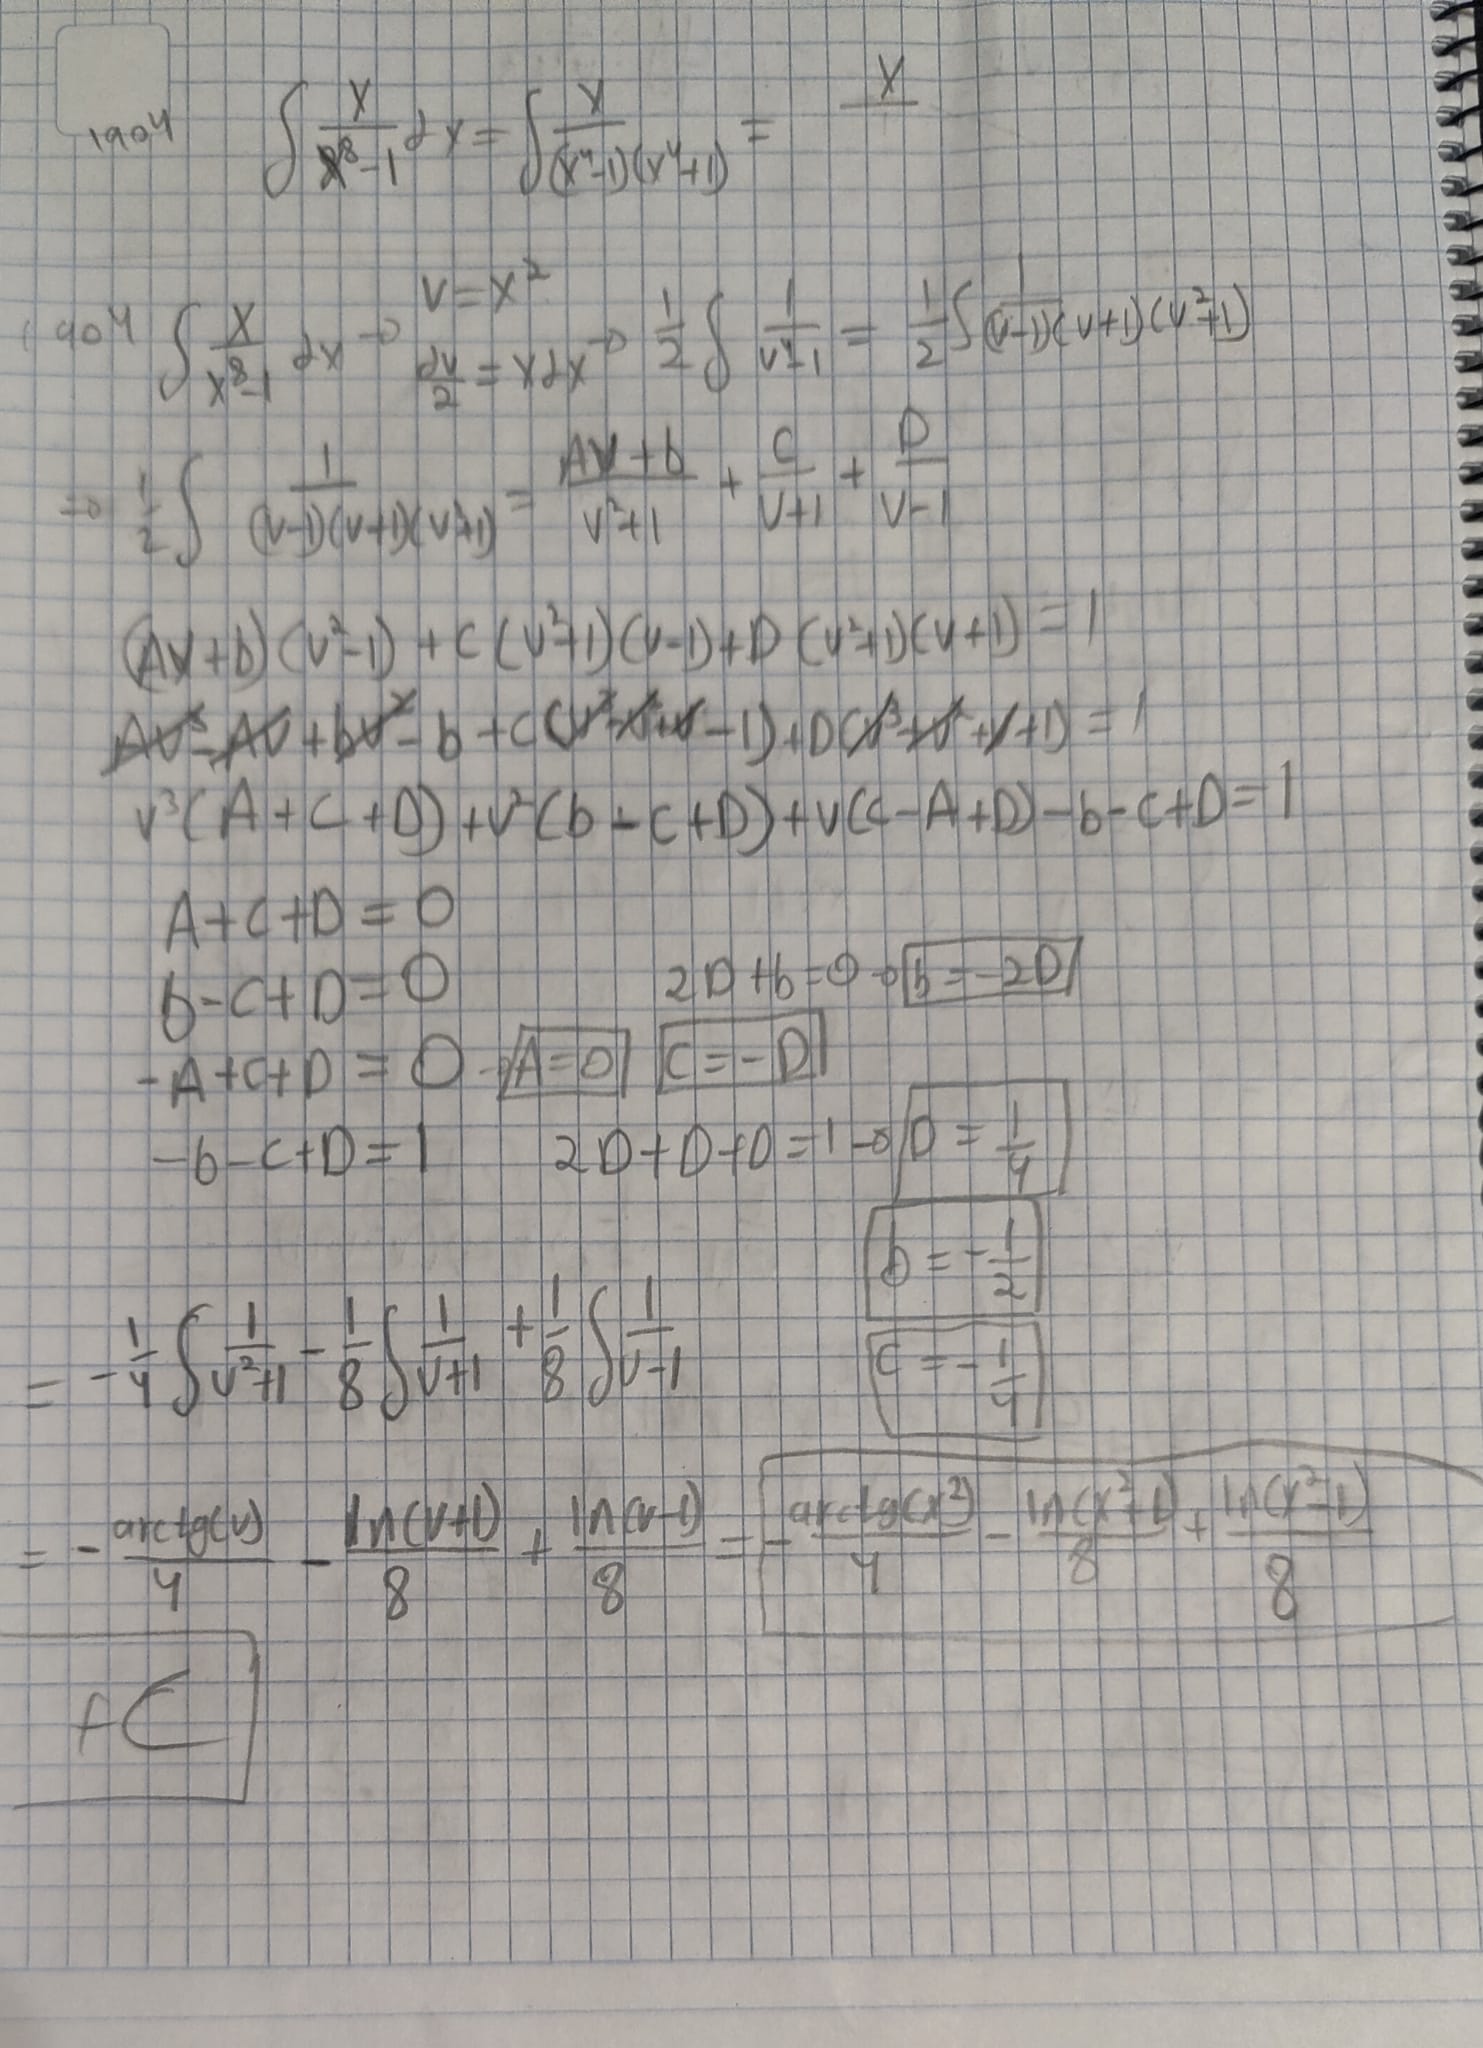 1904 ∫ x/(x⁸-1) dx = ∫ x/((x⁴-1)(x⁴+1)) = x/
1904 ∫ x/(x⁸-1) dx → v=x² dv/2 = xdx → 1/2 ∫ 1/(v⁴-1) = 1/2 ∫ 1/((v-1)(v+1)(v²+1))
⇒ 1/2 ∫ 1/((v-1)(v+1)(v²+1)) = (Av+b)/(v²+1) + C/(v+1) + D/(v-1)
(Av+b)(v²-1)+C(v²+1)(v-1)+D(v²+1)(v+1)=1
Av³-Av+bv²-b+C(v³-v²+v-1)+D(v³+v²+v+1)=1
v³(A+C+D)+v²(b-C+D)+v(C-A+D)-b-C+D=1
A+C+D=0
b-C+D=0 2D+b=0→b=-2D
-A+C+D=0→A=0 C=-D
-b-C+D=1 2D+D+D=1→D=1/4
b=-1/2
= -1/4 ∫ 1/(v²+1) - 1/8 ∫ 1/(v+1) + 1/8 ∫ 1/(v-1) C=-1/4
= - arctg(v)/4 - ln(v+1)/8 + ln(v-1)/8 = - arctg(x²)/4 - ln(x²+1)/8 + ln(x²-1)/8
+C